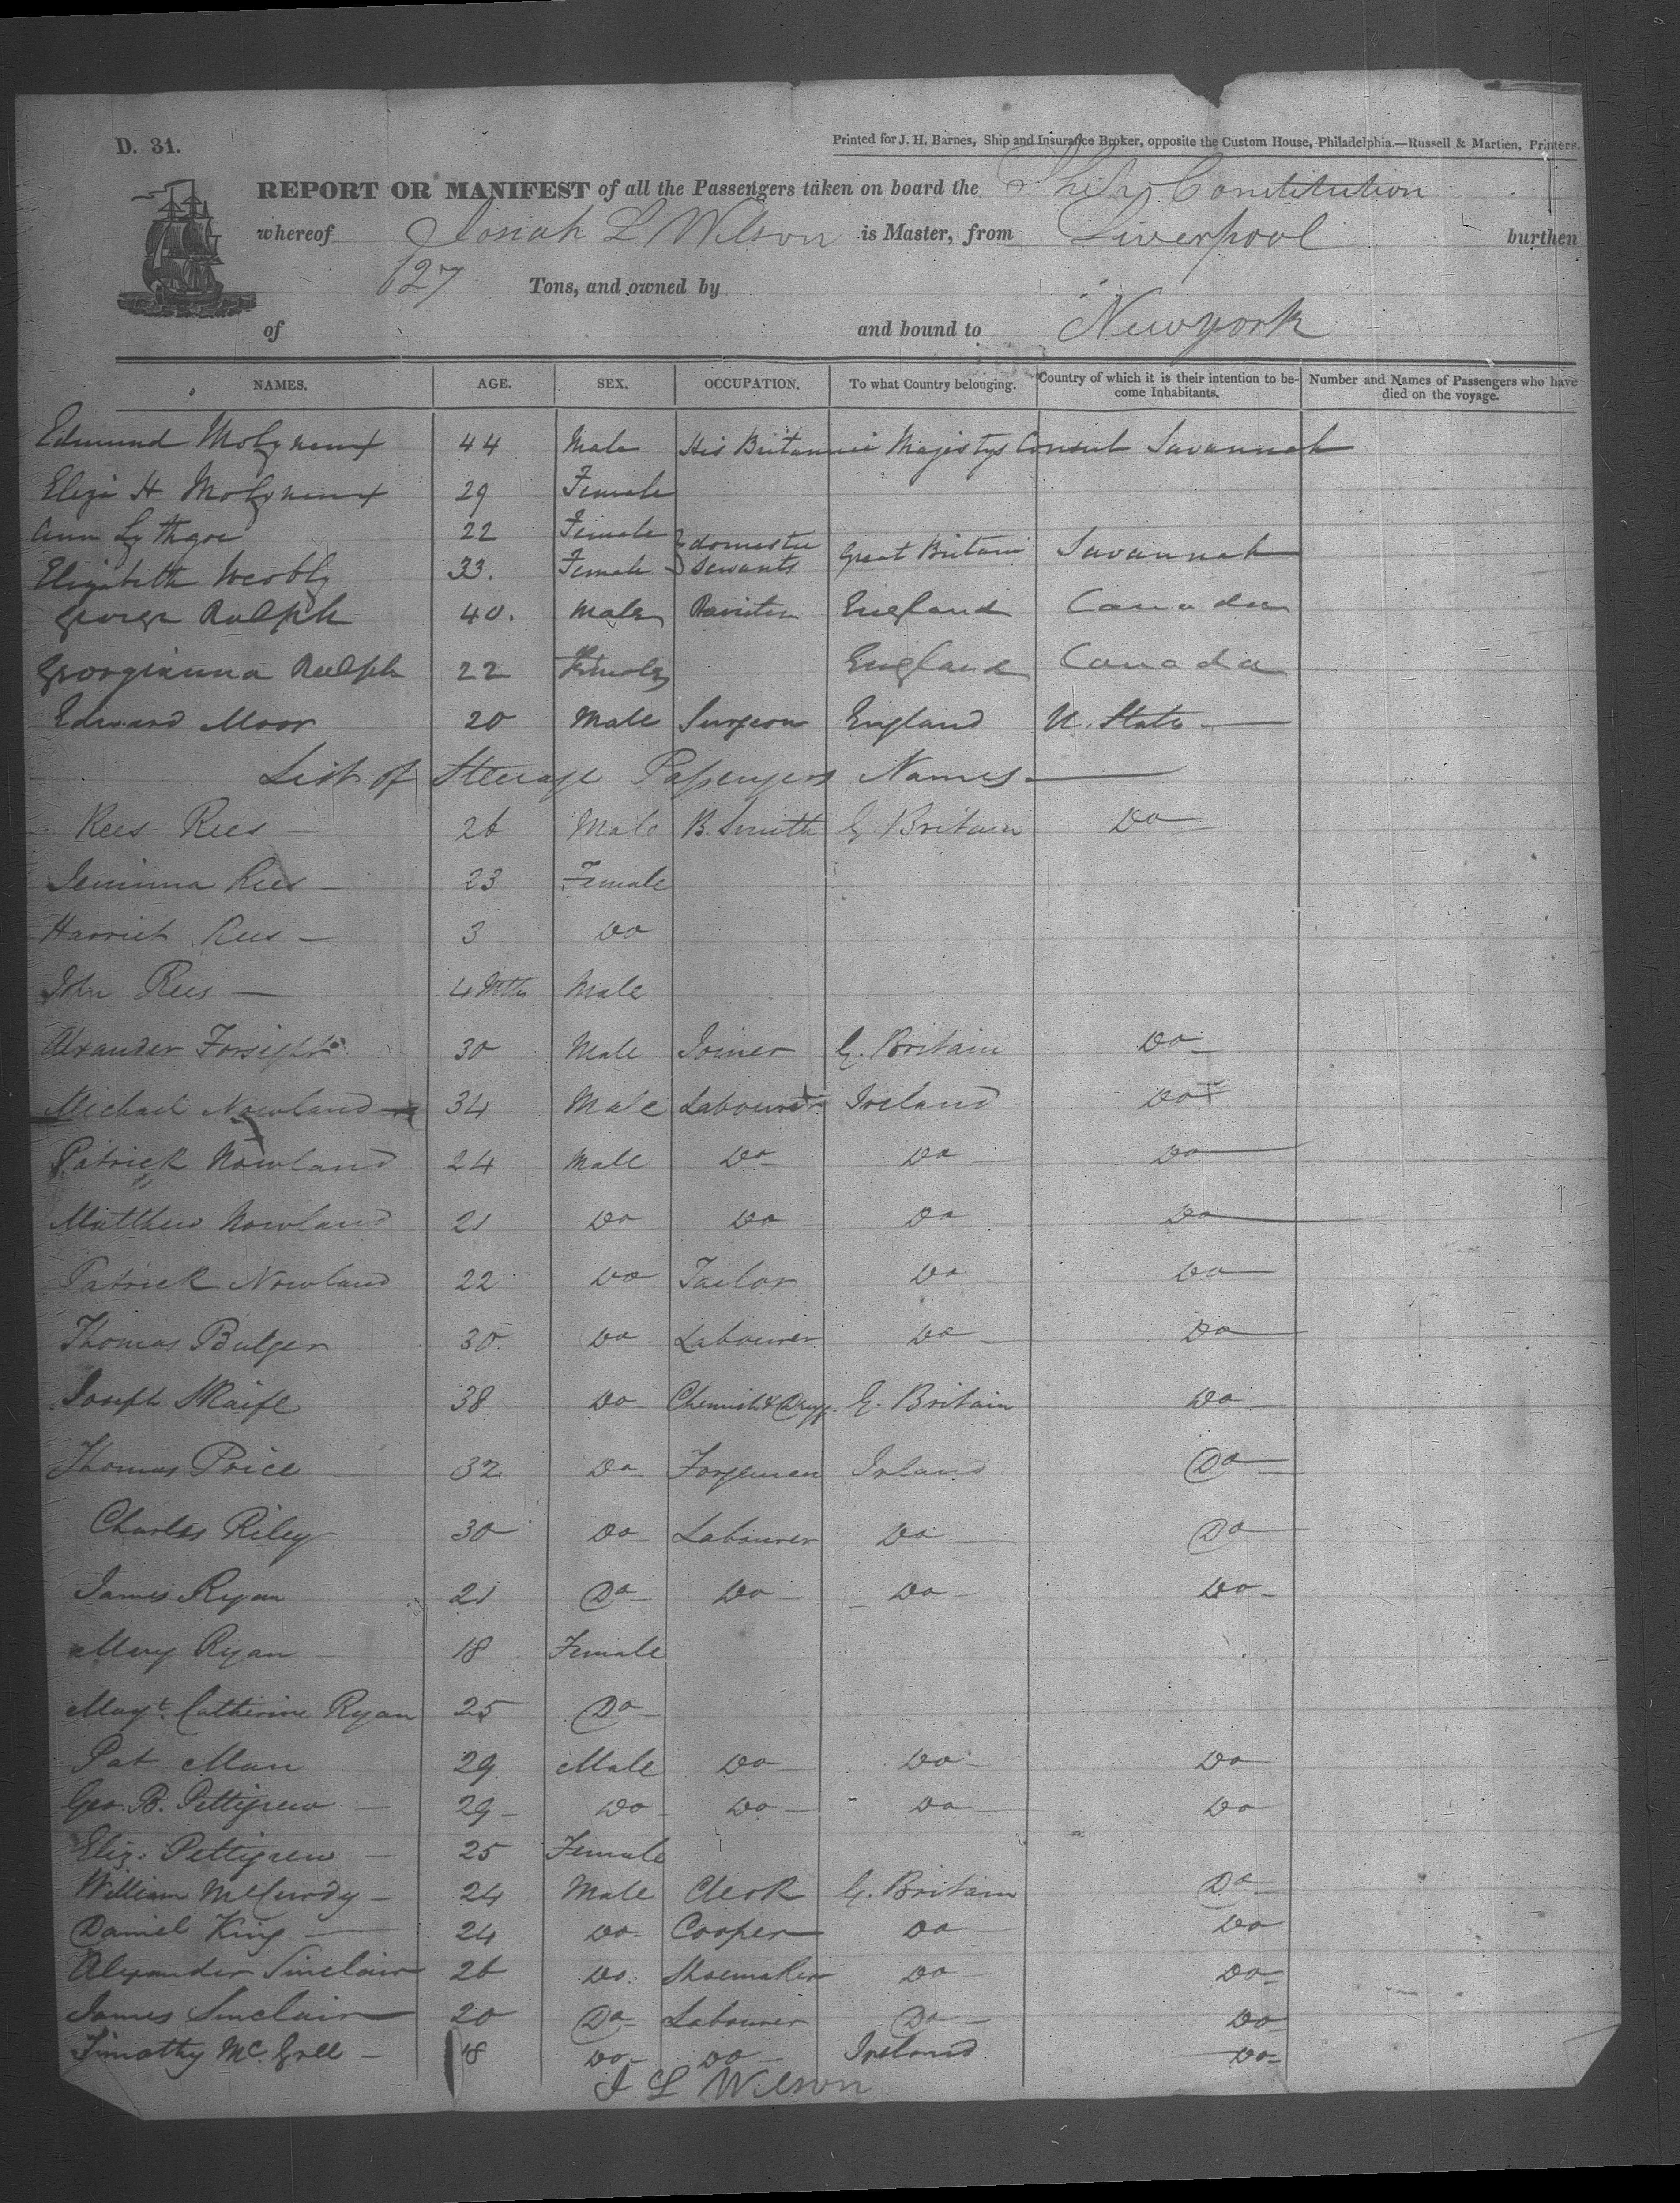 D. 31.
Printed for J. H. Barnes, Ship and Insurance Broker, opposite the Custom House, Philadelphia.—Russell & Martien, Printers.
REPORT OR MANIFEST of all the Passengers taken on board the Ship Constitution
whereof Josiah L Wilson is Master, from Liverpool burthen
627 Tons, and owned by
of and bound to Newyork
NAMES. AGE. SEX. OCCUPATION. To what Country belonging. Country of which it is their intention to become Inhabitants. Number and Names of Passengers who have died on the voyage.
Edmund Molyneux 44 Male His Britannic Majestys Consul Savannah
Eliza H Molyneux 29 Female
Ann Lythgoe 22 Female domestic
Elizabeth 33. Female Servants Great Britain Savannah
George Ralph 40. Male England Canada
Georgianna Ralph 22 Female England Canada
Edward Moor 20 Male Surgeon England U. States
List of Steerage Passengers Names
Rees Rees 26 Male B. Smith G. Britain Do
Jemima Rees 23 Female
Harriet Rees 3 Do
John Rees 4 Mths Male
Alexander Forsight 30 Male Joiner G. Britain Do
Michael Nowland 34 Male Labourer Ireland Do
Patrick Nowland 24 Male Do Do Do
Matthew Nowland 21 Do Do Do Do
Patrick Nowland 22 Do Tailor Do Do
Thomas Bulger 30 Do Labourer Do Do
Joseph Skaife 38 Do Chemist & Drugg. G. Britain Do
Thomas Price 32 Do Forgeman Irland Do
Charles Riley 30 Do Labourer Do Do
James Ryan 21 Do Do Do Do
Mary Ryan 18 Female
Magt. Catherine Ryan 25 Do
Pat Man 29 Male Do Do Do
Geo. B. Pettigrew 29 Do Do Do Do
Eliz. Pettigrew 25 Female
William McCurdy 24 Male Clerk G. Britain Do
Daniel King 24 Do Cooper Do Do
Alexander Sinclair 26 Do Shoemaker Do Do
James Sinclair 20 Do Labourer Do Do
Timothy Mc. 18 Do Do Ireland Do
J L Wilson